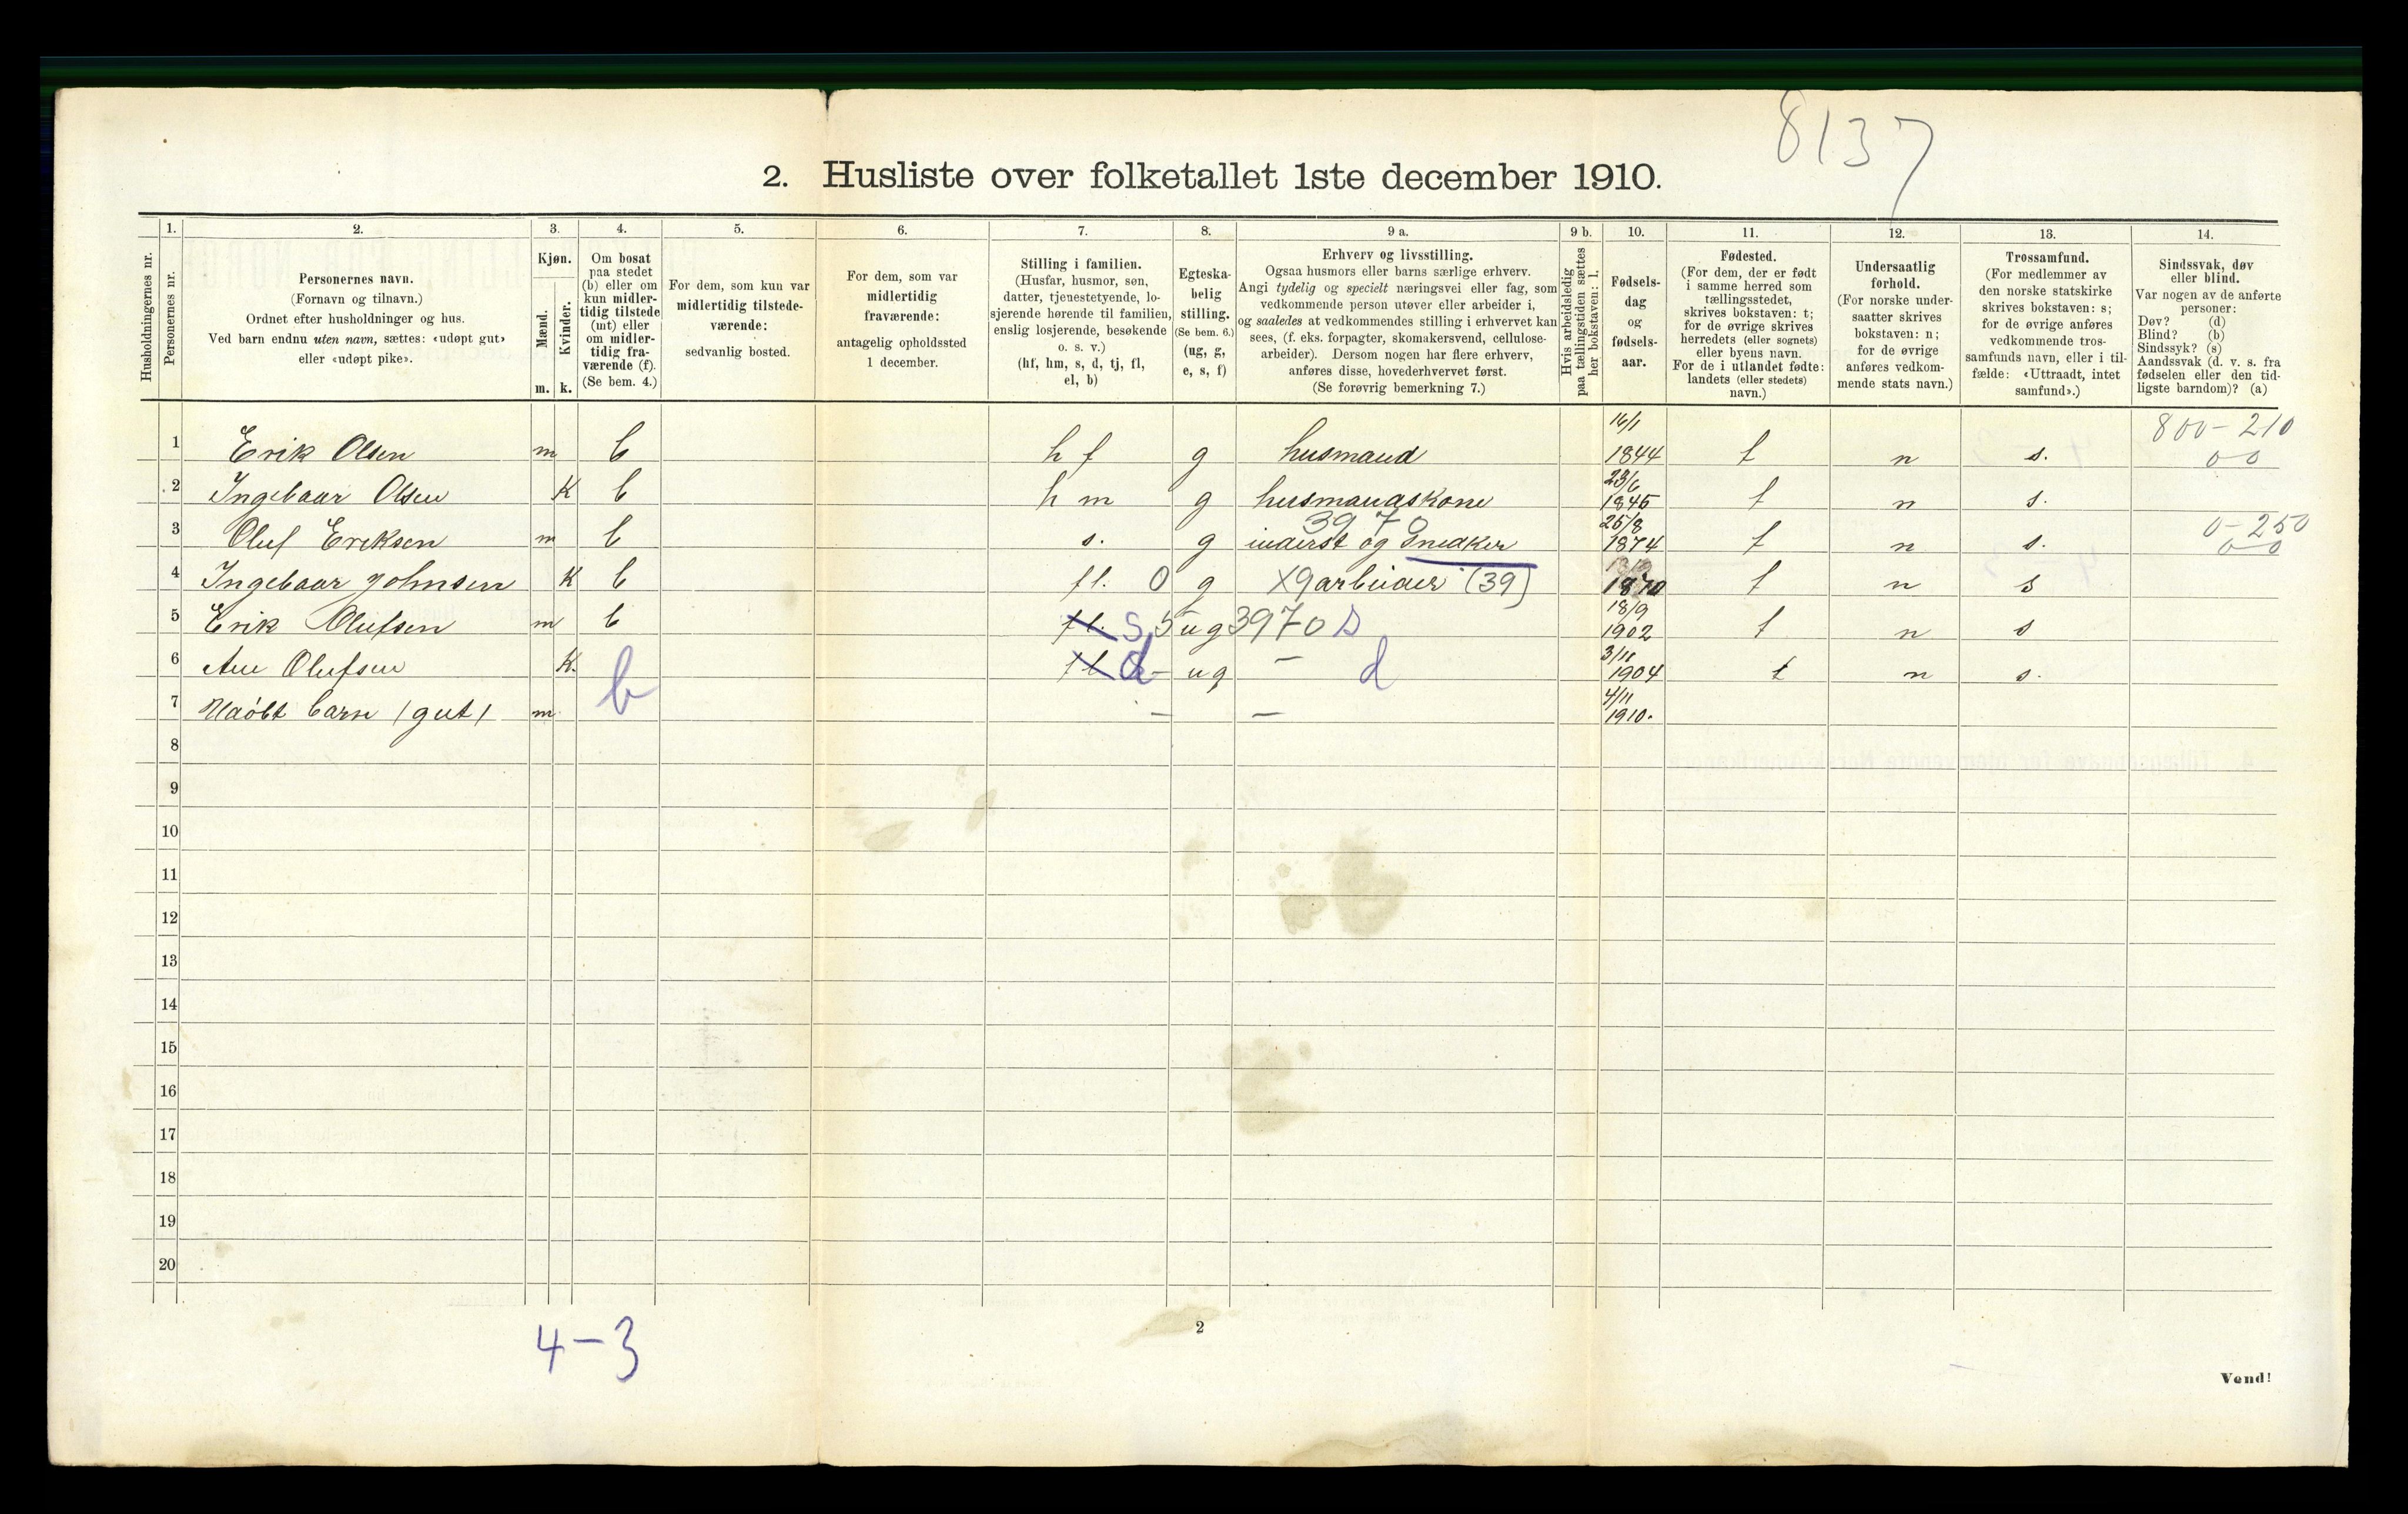 8137
2. Husliste over folketallet 1ste december 1910.
Husholdningernes nr.
1. Personernes nr.
2. Personernes navn.
(Fornavn og tilnavn.)
Ordnet efter husholdninger og hus.
Ved barn endnu uten navn, sættes: «udøpt gut»
eller «udøpt pike».
3. Kjøn.
Mænd. m.
Kvinder. k.
4. Om bosat
paa stedet
(b) eller om
kun midler-
tidig tilstede
(mt) eller
om midler-
tidig fra-
værende (f).
(Se bem. 4.)
5. For dem, som kun var
midlertidig tilstede-
værende:
sedvanlig bosted.
6. For dem, som var
midlertidig
fraværende:
antagelig opholdssted
1 december.
7. Stilling i familien.
(Husfar, husmor, søn,
datter, tjenestetyende, lo-
sjerende hørende til familien,
enslig losjerende, besøkende
o. s. v.)
(hf, hm, s, d, tj, fl,
el, b)
8. Egteska-
belig
stilling.
(Se bem. 6.)
(ug, g,
e, s, f)
9 a. Erhverv og livsstilling.
Ogsaa husmors eller barns særlige erhverv.
Angi tydelig og specielt næringsvei eller fag, som
vedkommende person utøver eller arbeider i,
og saaledes at vedkommendes stilling i erhvervet kan
sees, (f. eks. forpagter, skomakersvend, cellulose-
arbeider). Dersom nogen har flere erhverv,
anføres disse, hovederhvervet først.
(Se forøvrig bemerkning 7.)
9 b. Hvis arbeidsledig
paa tællingstiden sættes
her bokstaven: l.
10. Fødsels-
dag
og
fødsels-
aar.
11. Fødested.
(For dem, der er født
i samme herred som
tællingsstedet,
skrives bokstaven: t;
for de øvrige skrives
herredets (eller sognets)
eller byens navn.
For de i utlandet fødte:
landets (eller stedets)
navn.)
12. Undersaatlig
forhold.
(For norske under-
saatter skrives
bokstaven: n;
for de øvrige
anføres vedkom-
mende stats navn.)
13. Trossamfund.
(For medlemmer av
den norske statskirke
skrives bokstaven: s;
for de øvrige anføres
vedkommende tros-
samfunds navn, eller i til-
fælde: «Uttraadt, intet
samfund».)
14. Sindssvak, døv
eller blind.
Var nogen av de anførte
personer:
Døv? (d)
Blind? (b)
Sindssyk? (s)
Aandssvak (d. v. s. fra
fødselen eller den tid-
ligste barndom)? (a)
1 Erik Olsen m b h f g husmand 16/1 1844 t n s. 800 - 210 0-0
2 Ingebaar Olsen K b h m g husmandskone 23/6 1845 t n s.
3970
3 Oluf Eriksen m b s. g inderst og Snedker 25/8 1874 t n s. 0-250 0-0
4 Ingebaar Johnsen K b fl. 0 g X garbeider (39) 1870 t n s
5 Erik Olufsen m b fl. s 5 ug 3970 s 18/9 1902 t n s
6 Ane Olufsen K. b fl d - ug - d 3/11 1904 t n s.
7 Udöbt barn (gut) m - - 4/11 1910.
8
9
10
11
12
13
14
15
16
17
18
19
20
4-3
2
Vend!